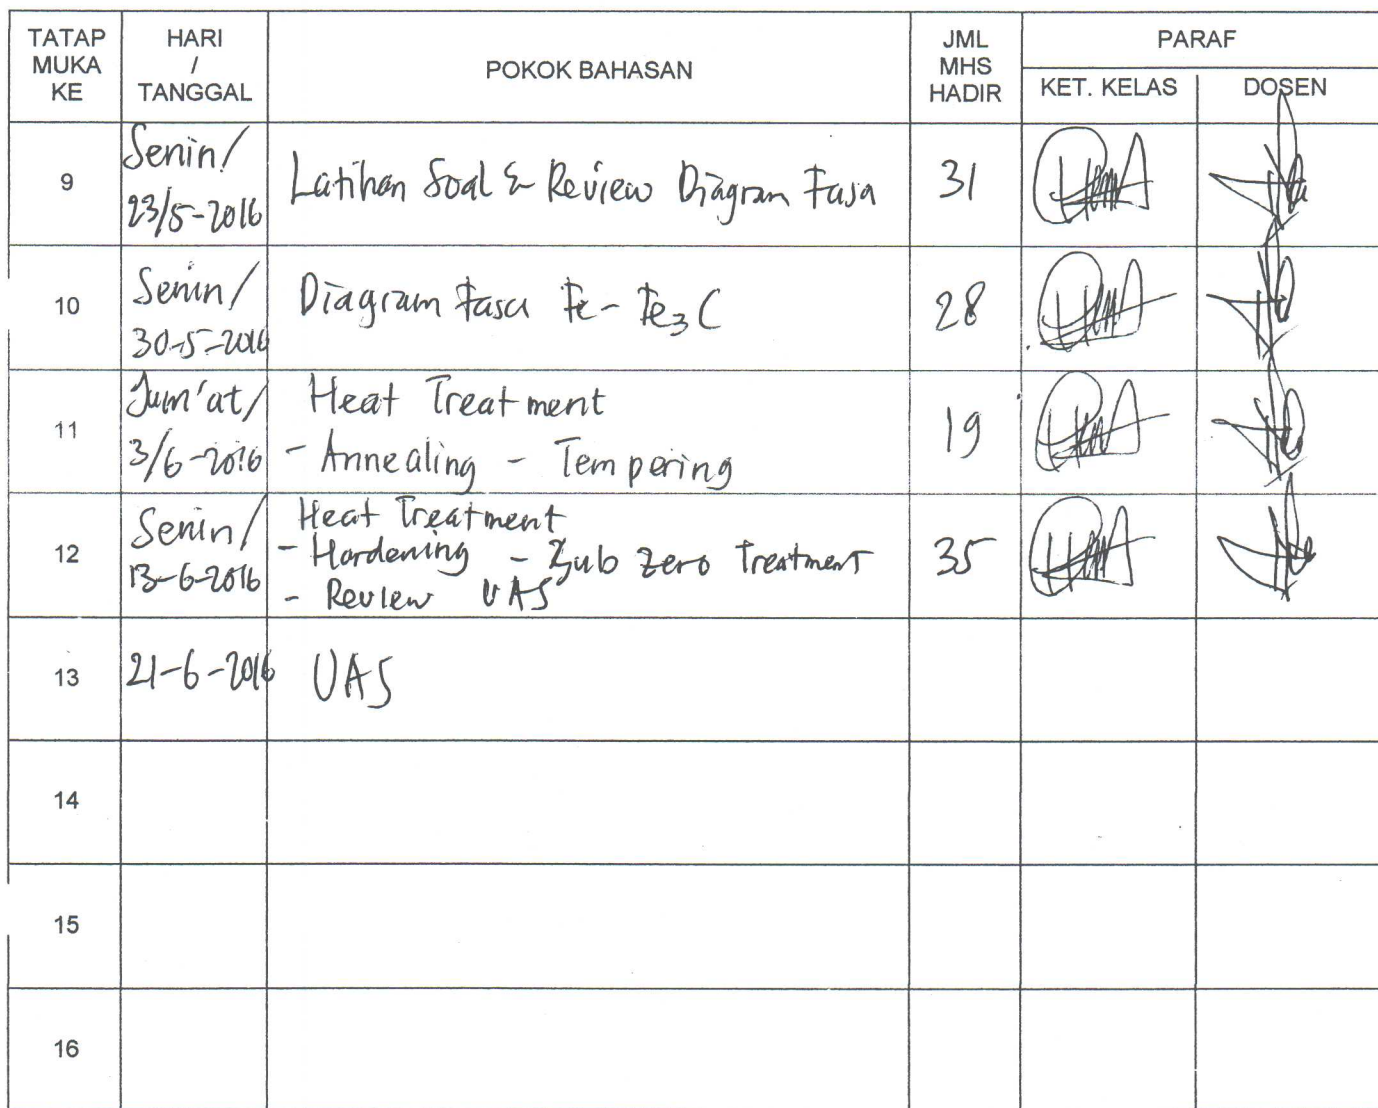 TATAP MUKA KE
HARI / TANGGAL
POKOK BAHASAN
JML MHS HADIR
PARAF
KET. KELAS
DOSEN
9
Senin/
23/5-2016
Latihan Soal & Review Diagram Fasa
31
10
Senin/
30-5-2016
Diagram Fasa Fe - Fe₃C
28
11
Jum'at/
3/6-2016
Heat Treatment
- Annealing - Tempering
19
12
Senin/
13-6-2016
Heat Treatment
- Hardening - Sub Zero Treatment
- Review UAS
35
13
21-6-2016
UAS
14
15
16